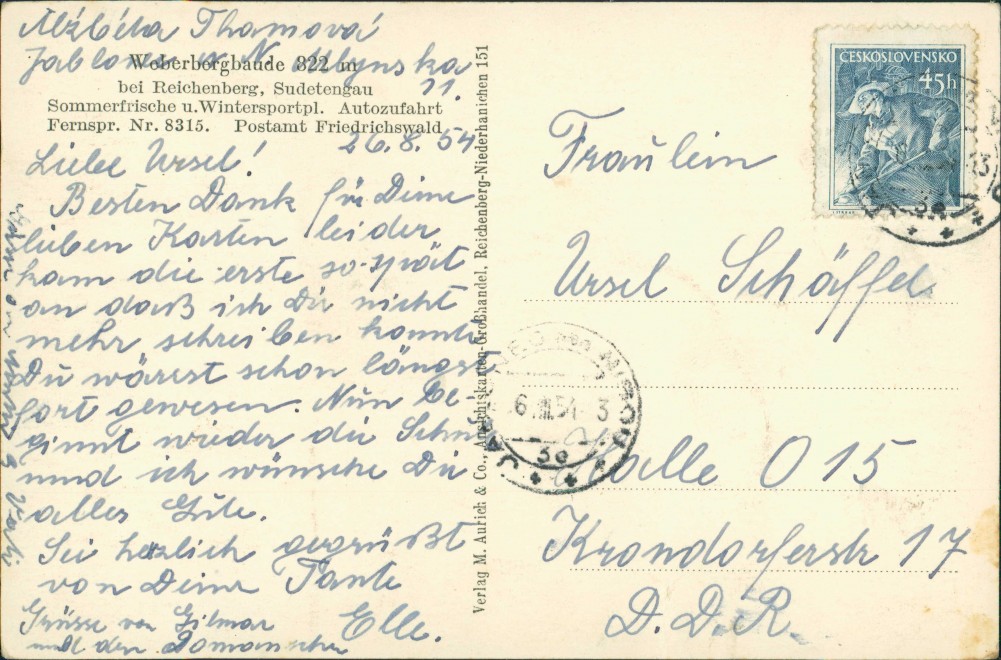 Alžběta Thamová
Jablonec n N. Mlýnska
11.
Weberbergbaude 822 m
bei Reichenberg, Sudetengau
Sommerfrische u. Wintersportpl. Autozufahrt
Fernspr. Nr. 8315. Postamt Friedrichswald
26.8.54
Liebe Ursel!
Besten Dank für Deine
lieben Karten leider
kam die erste so spät
an daß ich Dir nicht
mehr schreiben konnte
Du wärest schon längst
fort gewesen. Nun be-
ginnt wieder die Schule
und ich wünsche Dir
alles Gute.
Sei herzlich gegrüßt
von Deiner Tante
Elle.
Grüsse von Gilmar
und den
Verlag M. Aurich & Co., Ansichtskarten-Großhandel, Reichenberg-Niederhanichen 151
ČESKOSLOVENSKO
45h
JABLONEC NAD NISOU
6.VIII.54-3
3a
3a
Fräulein
Ursel Schäffel
Halle O 15
Krondorferstr 17
D.D.R.